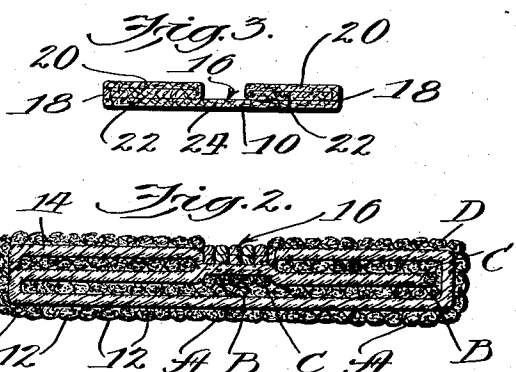 Fig. 3.
20 16 20
18 18
22 24 10 22
Fig. 2.
14 16 D
C
12 12 A B C A B